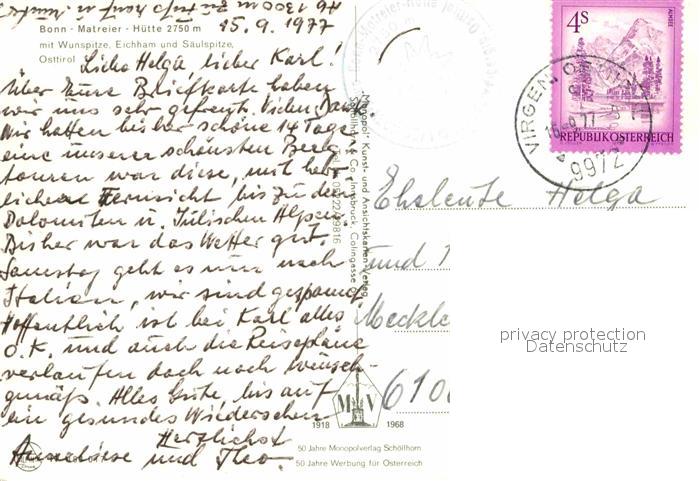 ab 1300 m zu Fuß
15.9.1977
Bonn - Matreier - Hütte 2750 m
mit Wunspitze, Eichham und Säulspitze,
Osttirol
Liebe Helga, lieber Karl!
Über Eure Briefkarte haben
wir uns sehr gefreut. Vielen Dank.
Wir hatten bisher schöne 14 Tage
eine unserer schönsten Berg
touren war diese, mit herr
licher Fernsicht bis zu den
Dolomiten u. Julischen Alpen.
Bisher war das Wetter gut.
Samstag geht es nun nach
Italien, wir sind gespannt.
Hoffentlich ist bei Karl alles
O.K. und auch die Reisepläne
verlaufen doch noch wunsch-
gemäß. Alles Gute, bis auf
ein gesundes Wiedersehen
Herzlichst
Anneliese und Theo.
Monopol: Kunst- und Ansichtskarten-Verlag
Schöllhorn & Co., Innsbruck, Colingasse
4S
REPUBLIK ÖSTERREICH
VIRGEN, OSTTIROL
9972
Eheleute Helga
und
Meckle
610
privacy protection
Datenschutz
M V
1918 1968
50 Jahre Monopolverlag Schöllhorn
50 Jahre Werbung für Österreich